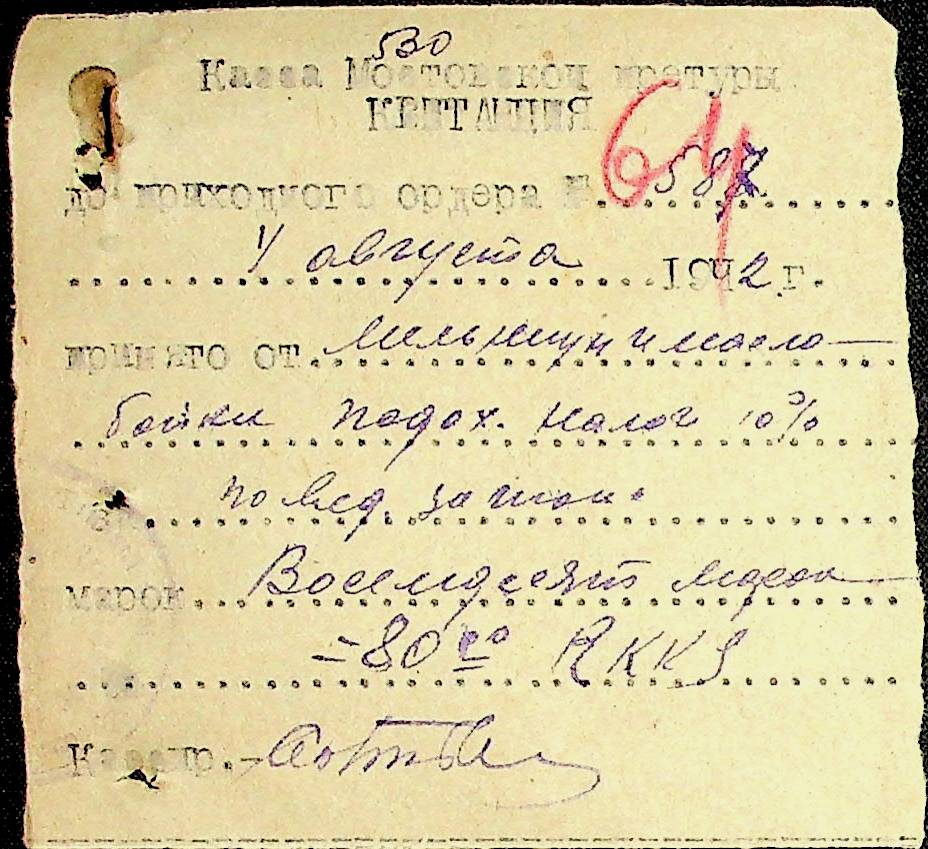 530
Касса Мостовской претуры
КВИТАНЦИЯ
64
до приходного ордера № 587
1 августа 1942 г.
принято от Мельницы и масло-
бойки подох. налог 10%
по вед. за июль
марок Восемдесят марок
=80 RKKS
Кассир.-